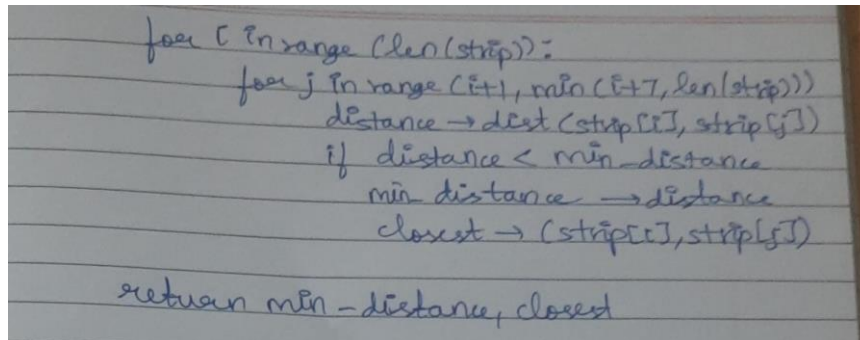 for i in range (len(strip)):
for j in range (i+1, min(i+7, len(strip)))
distance → dist (strip[i], strip[j])
if distance < min_distance
min_distance → distance
closest → (strip[i], strip[j])
return min_distance, closest